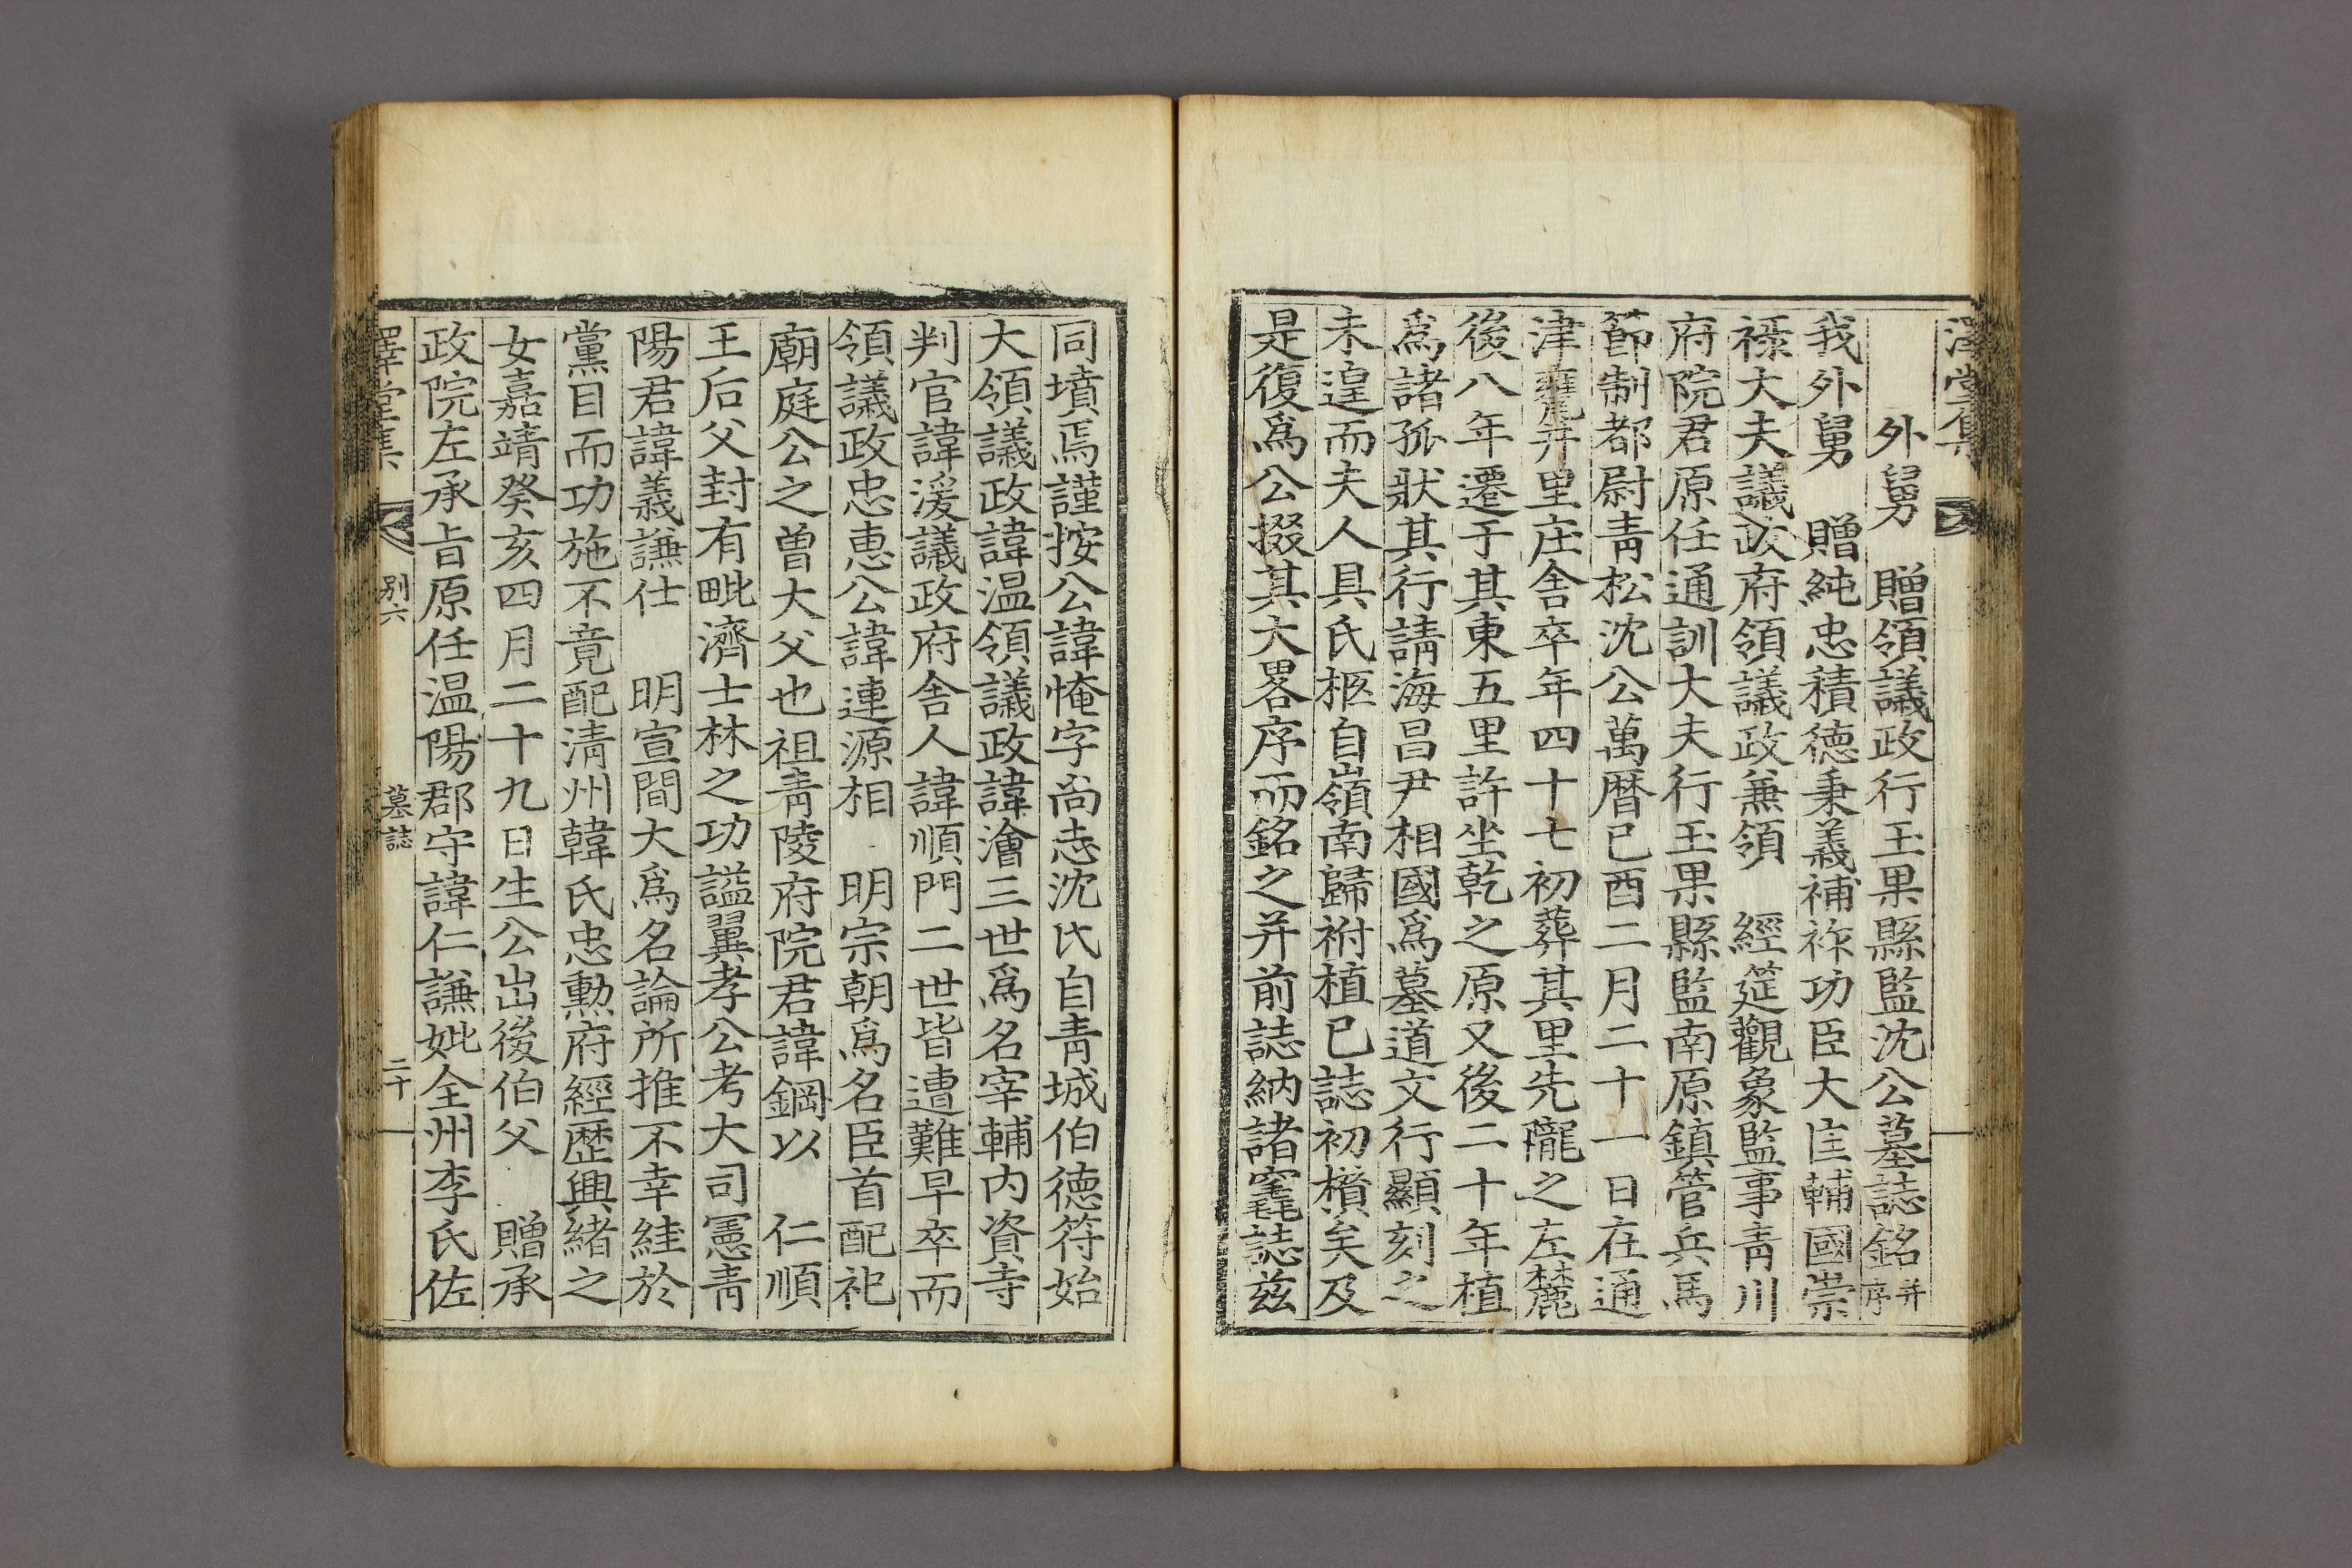 澤堂集
外舅 贈領議政行玉果縣監沈公墓誌銘并序
我外舅 贈純忠積德秉義補祚功臣大匡輔國崇
祿大夫議政府領議政兼領 經筵觀象監事靑川
府院君原任通訓大夫行玉果縣監南原鎭管兵馬
節制都尉靑松沈公萬曆己酉二月二十一日在通
津甕井里庄舍卒年四十七初葬其里先隴之左麓
後八年遷于其東五里許坐乾之原又後二十年植
爲諸孤狀其行請海昌尹相國爲墓道文行顯刻之
未遑而夫人具氏柩自嶺南歸祔植已誌初櫕矣及
是復爲公掇其大畧序而銘之并前誌納諸窆誌玆
同墳焉謹按公諱㤿字尙志沈氏自靑城伯德符始
大領議政諱温領議政諱澮三世爲名宰輔内資寺
判官諱湲議政府舍人諱順門二世皆遭難早卒而
領議政忠惠公諱連源相 明宗朝爲名臣首配祀
廟庭公之曾大父也祖靑陵府院君諱鋼以 仁順
王后父封有毗濟士林之功謚翼孝公考大司憲靑
陽君諱義謙仕 明宣間大爲名論所推不幸絓於
黨目而功施不竟配淸州韓氏忠勳府經歷興緖之
女嘉靖癸亥四月二十九日生公出後伯父 贈承
政院左承旨原任温陽郡守諱仁謙妣全州李氏佐
澤堂集 别六 墓誌 二十